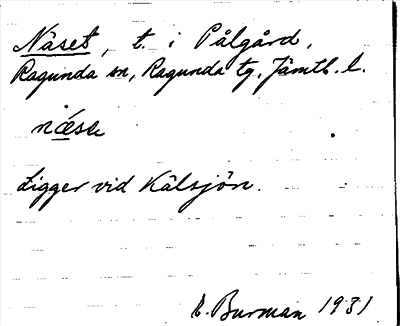 Näset, t. i Pålgård,
Ragunda sn, Ragunda tg, Jämtl. l.
næ̊se
Ligger vid Kälsjön.
E. Burman 1931